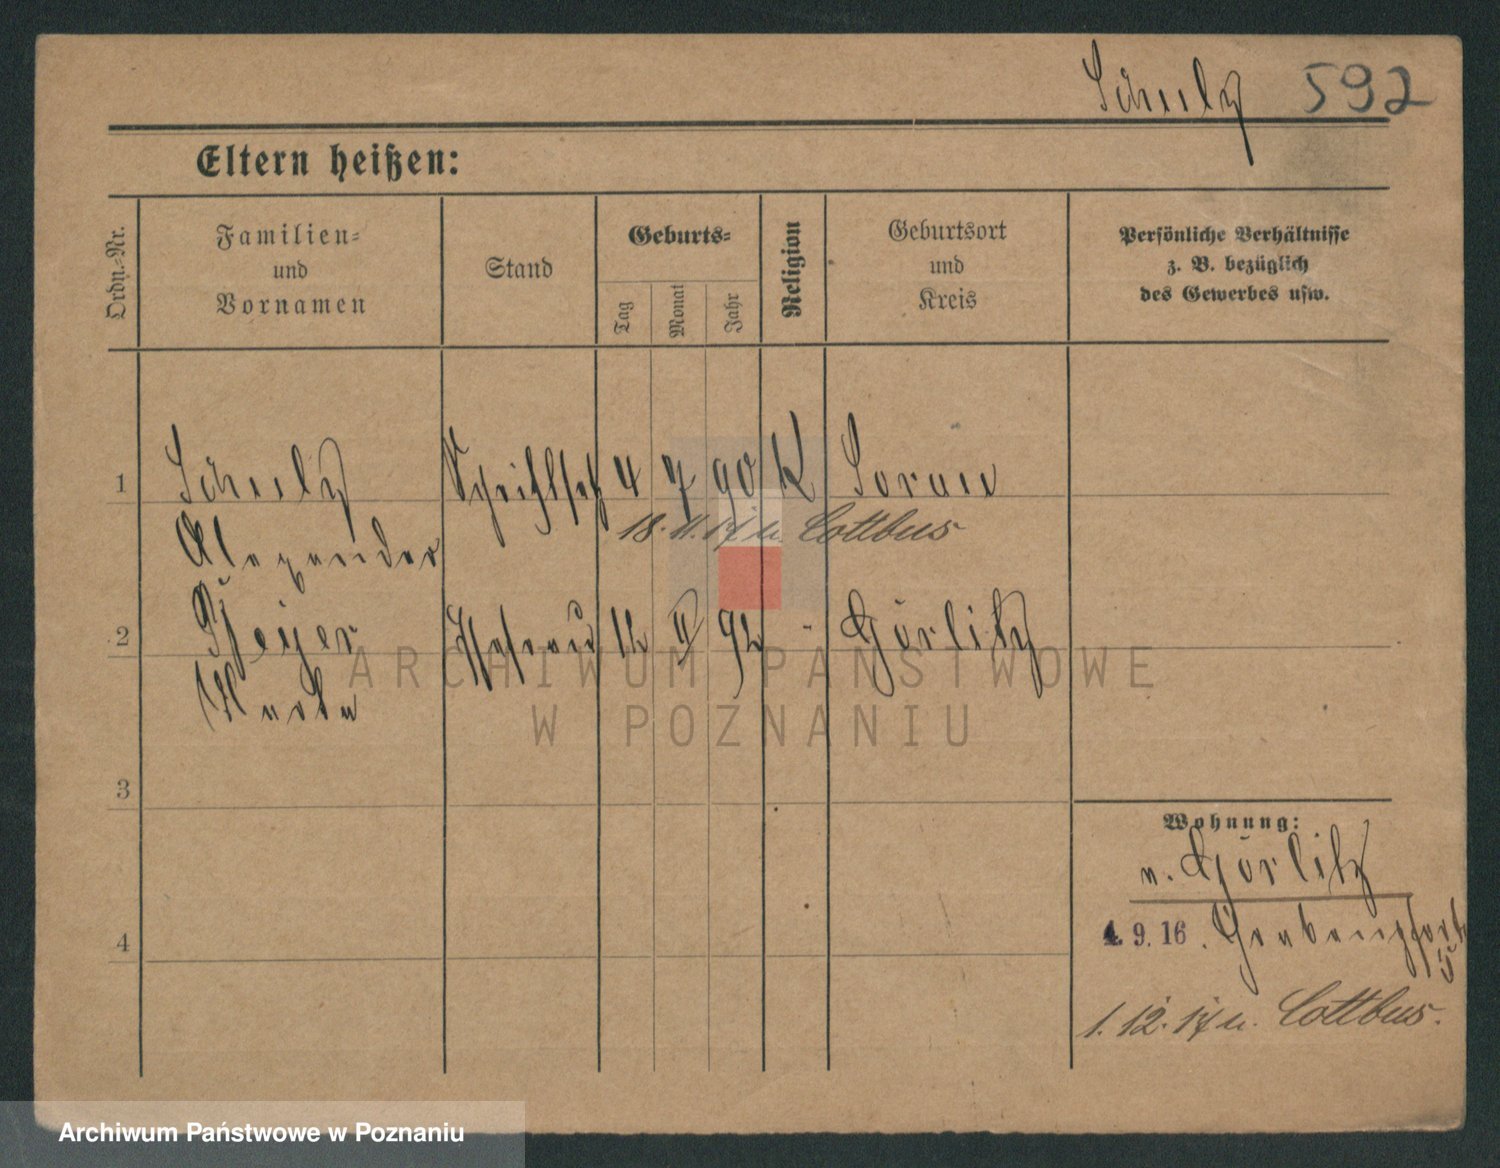 Schulz 592
Eltern heißen:
Ordn.-Nr.
Familien-
und
Vornamen
Stand
Geburts-
Tag
Monat
Jahr
Religion
Geburtsort
und
Kreis
Persönliche Verhältnisse
z. B. bezüglich
des Gewerbes usw.
1 Schulz 4 7 90 K Sorau
18. 11. 17 n. Cottbus
Alexander
2 Geyer Ehefrau 12 92 - Görlitz
Marta
ARCHIWUM PAŃSTWOWE
W POZNANIU
3
4
Wohnung:
n. Görlitz
4. 9. 16
5
1. 12. 17 n. Cottbus.
Archiwum Państwowe w Poznaniu